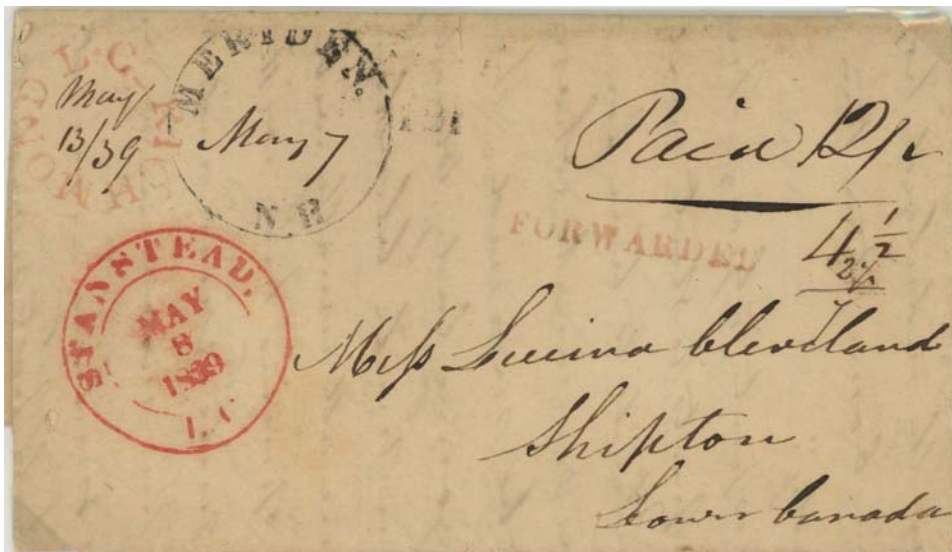 RICHMOND L.C.
May
13/39
MERIDEN.
May 7
N.H
PAID
Paid 12½
FORWARDED
4½
2½
7
STANSTEAD,
MAY
8
1839
L.C
Miss Lucina Cleveland
Shipton
Lower Canada